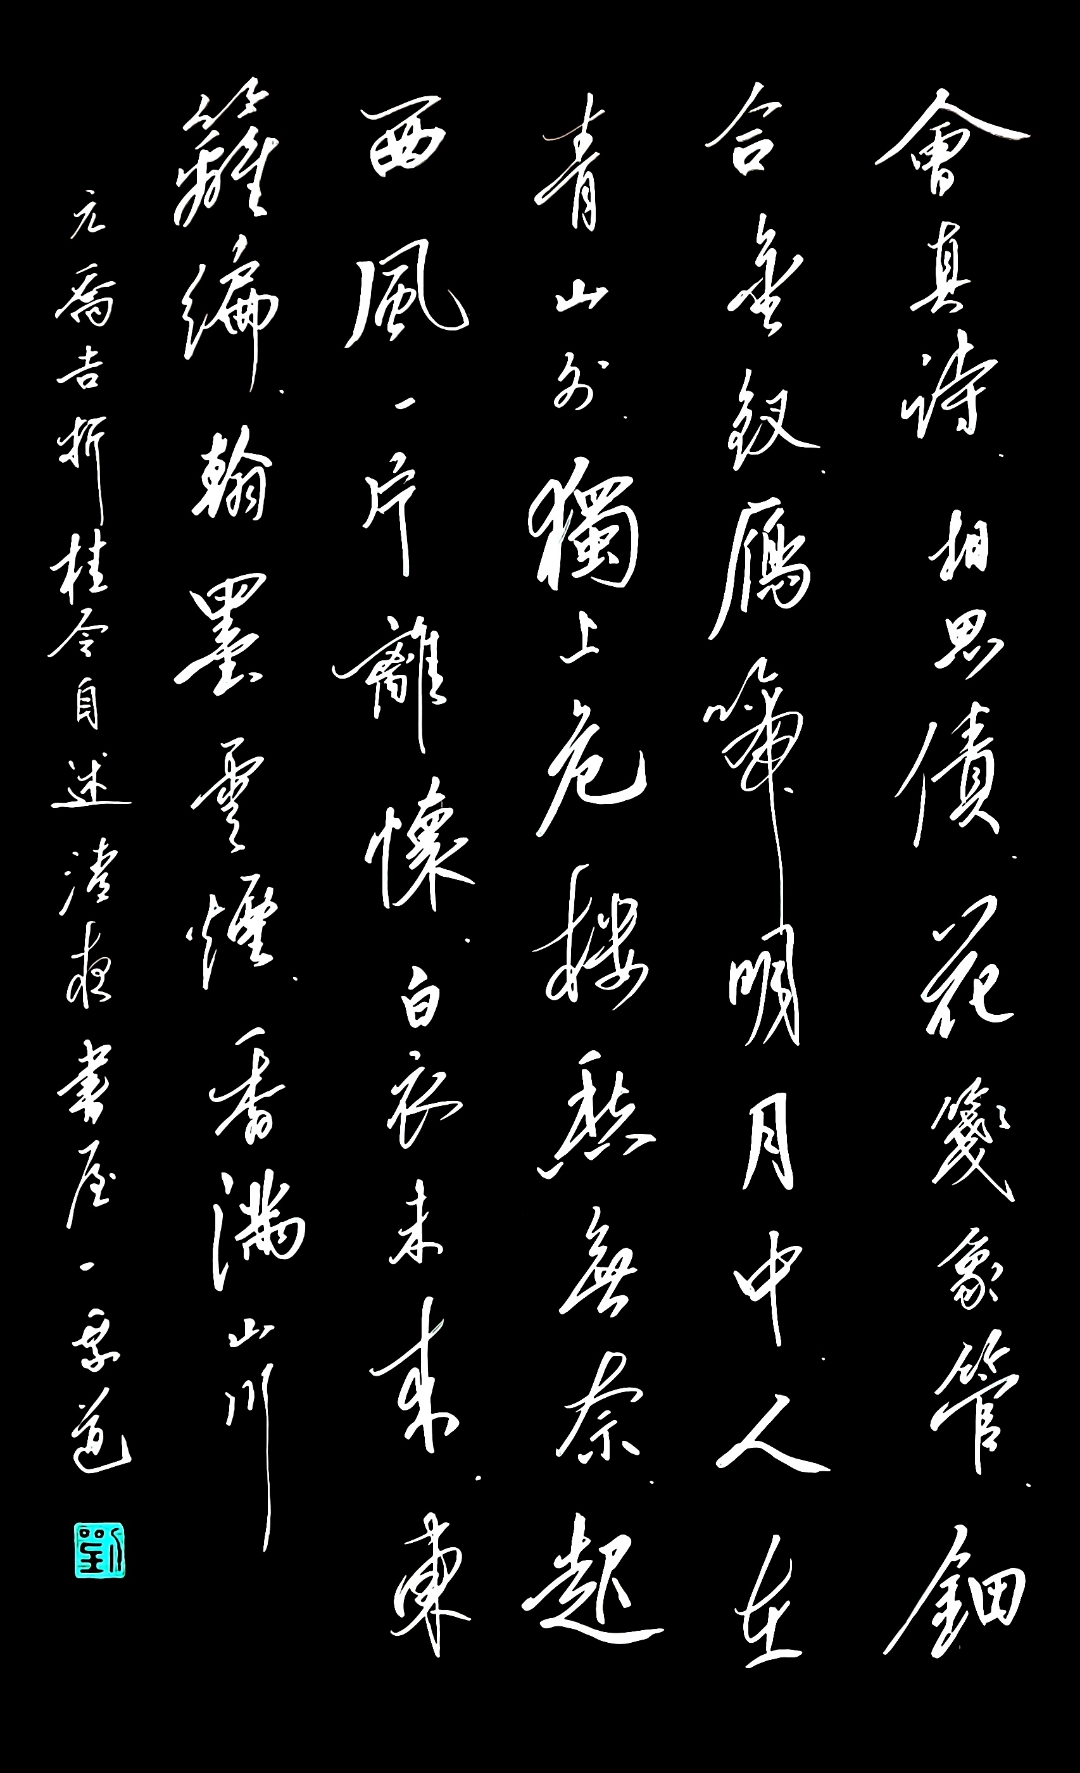 會真詩.相思債.花箋象管.鈿
合金釵.雁啼明月中.人在
青山外.獨上危樓愁無奈.起
西風一片離懷.白衣未來.東
籬編.翰墨雲煙.香滿山川
元喬吉折桂令自述清夜書屋一乘道
劉